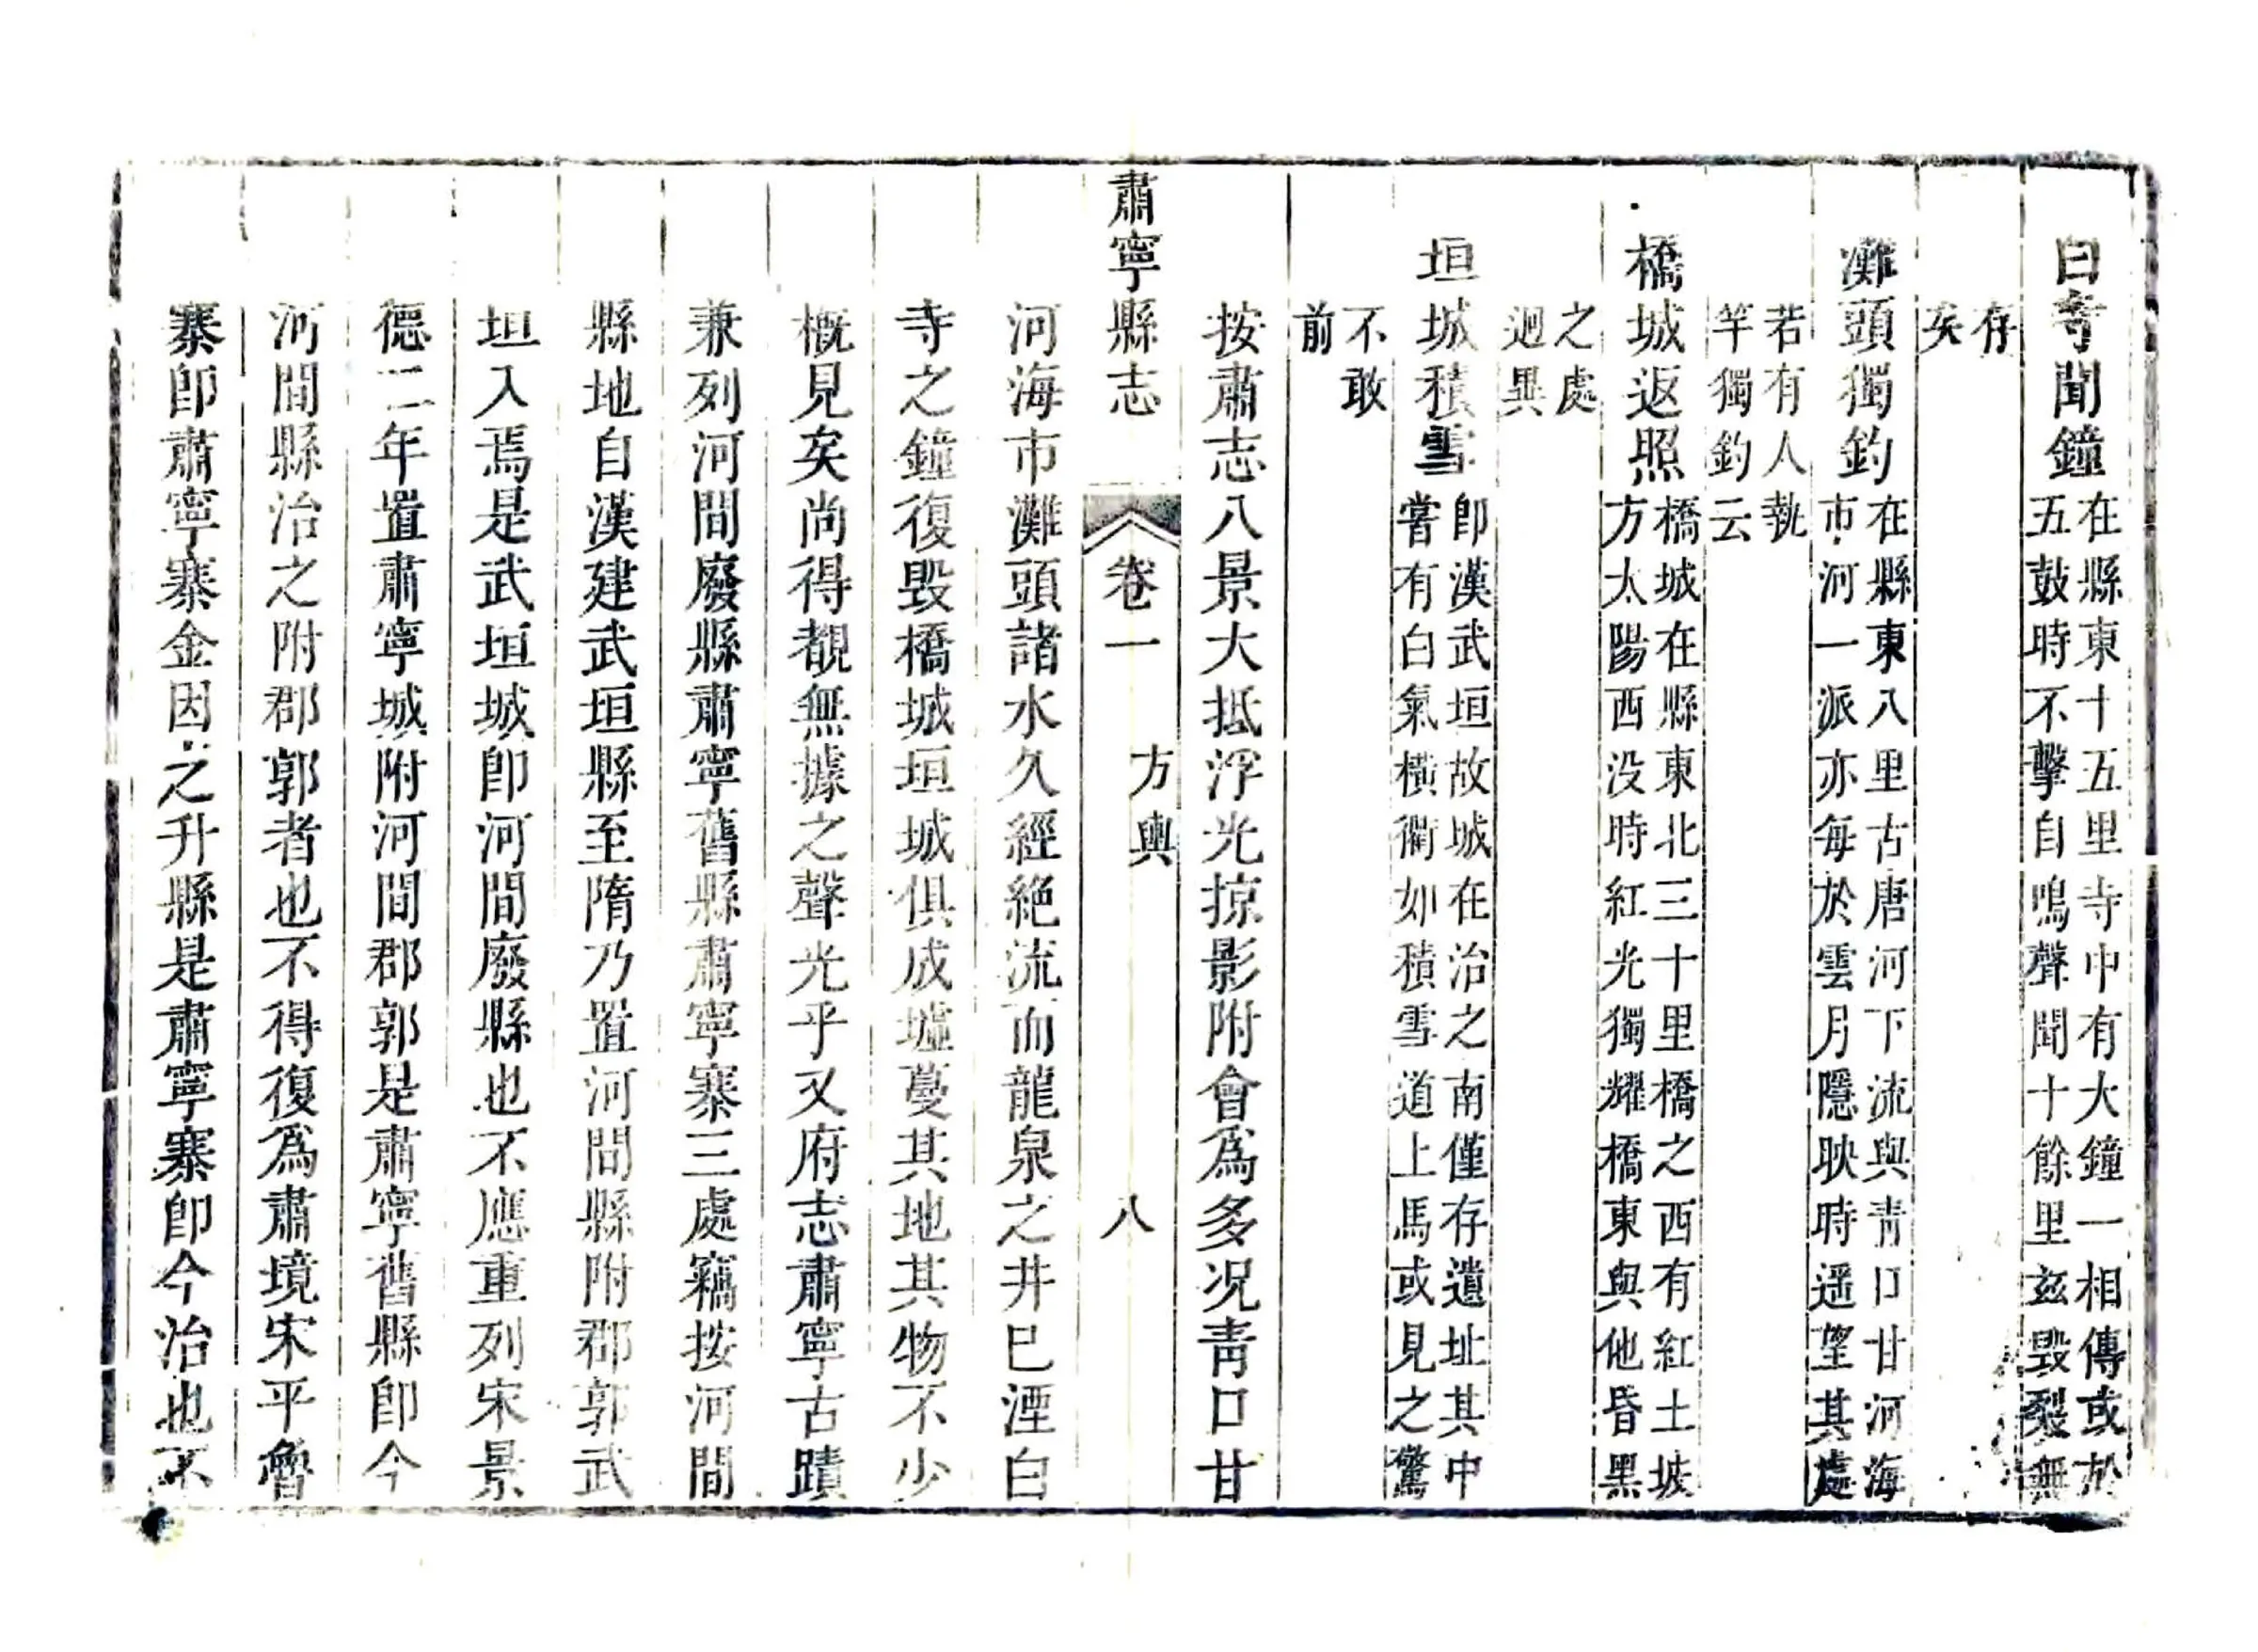 白寺聞鐘在縣東十五里寺中有大鐘一相傳或於
五鼓時不擊自鳴聲聞十餘里玆毀裂無
存
矣
灘頭獨釣在縣東八里古唐河下流與青口甘河海
市河一派亦每於雲月隱映時遥望其處
若有人執
竿獨釣云
橋城返照橋城在縣東北三十里橋之西有紅土坡
方太陽西没時紅光獨耀橋東與他昏黑
之處
迥異
垣城積雪卽漢武垣故城在治之南僅存遺址其中
嘗有白氣橫衢如積雪道上馬或見之驚
不敢
前
按肅志八景大抵浮光掠影附會爲多况靑口甘
肅寧縣志 卷一 方輿 八
河海市灘頭諸水久經絶流而龍泉之井巳湮白
寺之鐘復毀橋城垣城俱成墟蔓其地其物不少
槪見矣尚得覩無據之聲光乎又府志肅寧古蹟
兼列河間廢縣肅寧舊縣肅寧寨三處竊按河間
縣地自漢建武垣縣至隋乃置河間縣附郡郭武
垣入焉是武垣城卽河間廢縣也不應重列宋景
德二年置肅寧城附河間郡郭是肅寧舊縣卽今
河間縣治之附郡郭者也不得復爲肅境宋平魯
寨卽肅寧寨金因之升縣是肅寧寨卽今治也不